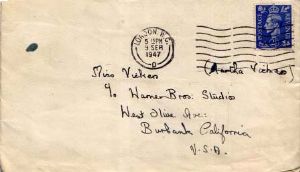 LONDON, N.
5 15 PM
9 SEP
1947
Miss Vickers (Martha Vickers)
c/o Warner Bros. Studios
West Olive Ave:
Burbank California
U.S.A.